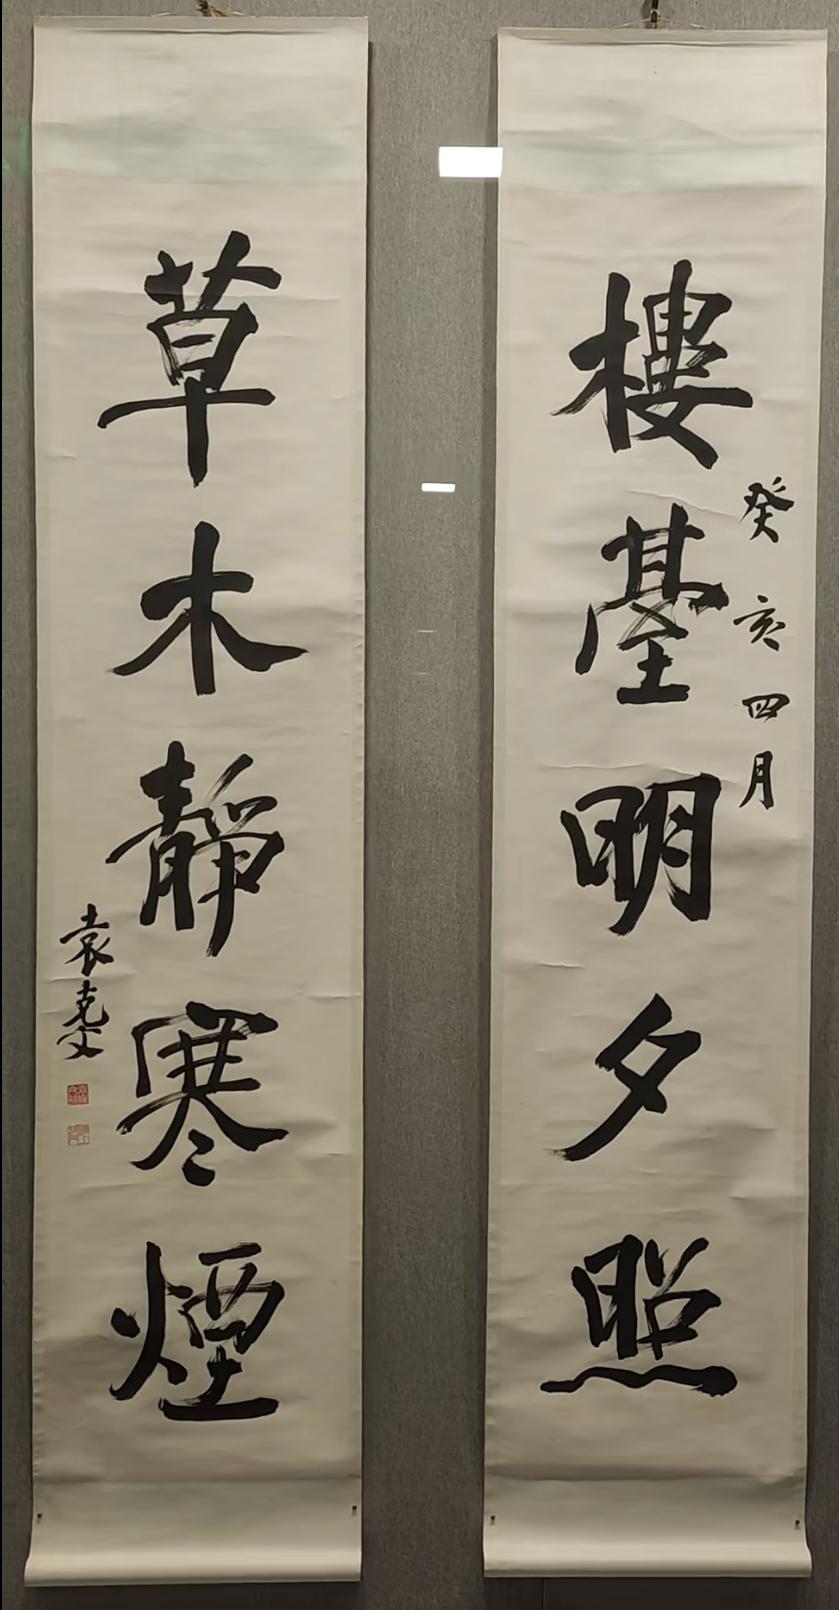 樓臺明夕照
癸亥四月
草木靜寒煙
袁克文